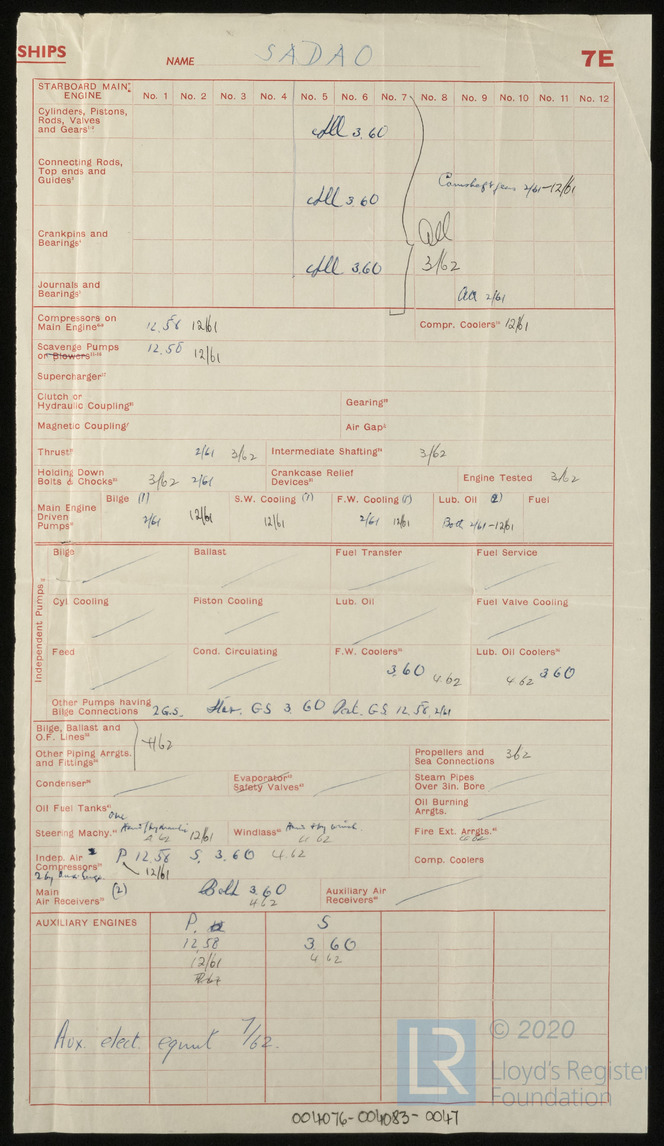 SHIPS
NAME SADAO 7E
STARBOARD MAIN ENGINE No. 1 No. 2 No. 3 No. 4 No. 5 No. 6 No. 7 No. 8 No. 9 No. 10 No. 11 No. 12
Cylinders, Pistons,
Rods, Valves
and Gears
All 3.60
Connecting Rods,
Top ends and
Guides
2/61-12/61
All 3.60
Crankpins and
Bearings
All
All 3.60 3/62
Journals and
Bearings
All 2/61
Compressors on
Main Engine 12.58 12/61 Compr. Coolers 12/61
Scavenge Pumps
or Blowers 12.58 12/61
Supercharger
Clutch or
Hydraulic Coupling Gearing
Magnetic Coupling Air Gap
Thrust 2/61 3/62 Intermediate Shafting 3/62
Holding Down
Bolts & Chocks 3/62 2/61 Crankcase Relief
Devices Engine Tested 3/62
Main Engine
Driven
Pumps
Bilge (1) S.W. Cooling (1) F.W. Cooling (1) Lub. Oil 2 Fuel
2/61 12/61 12/61 2/61 12/61 Both 2/61-12/61
Independent Pumps
Bilge Ballast Fuel Transfer Fuel Service
Cyl Cooling Piston Cooling Lub. Oil Fuel Valve Cooling
Feed Cond. Circulating F.W. Coolers Lub. Oil Coolers
3.60 4.62 4.62 3.60
Other Pumps having
Bilge Connections 2 G.S. Star. GS 3 60 Port. G.S. 12.58 2/61
Bilge, Ballast and
O.F. Lines
4/62
Other Piping Arrgts.
and Fittings
Propellers and
Sea Connections 3/62
Condenser Evaporator
Safety Valves Steam Pipes
Over 3in. Bore
Oil Fuel Tanks Oil Burning
Arrgts.
one
Steering Machy. 4.62 12/61 Windlass 4.62 Fire Ext. Arrgts. 4.62
Indep. Air
Compressors 2 P 12.58 S. 3.60 4.62 Comp. Coolers
12/61
Main
Air Receivers (2) Both 3.60 4.62 Auxiliary Air
Receivers
AUXILIARY ENGINES P. S
12.58 3 60
12/61 4 62
Aux. elect. equmt 7/62.
LR © 2020
Lloyd's Register
Foundation
004076-004083-0047